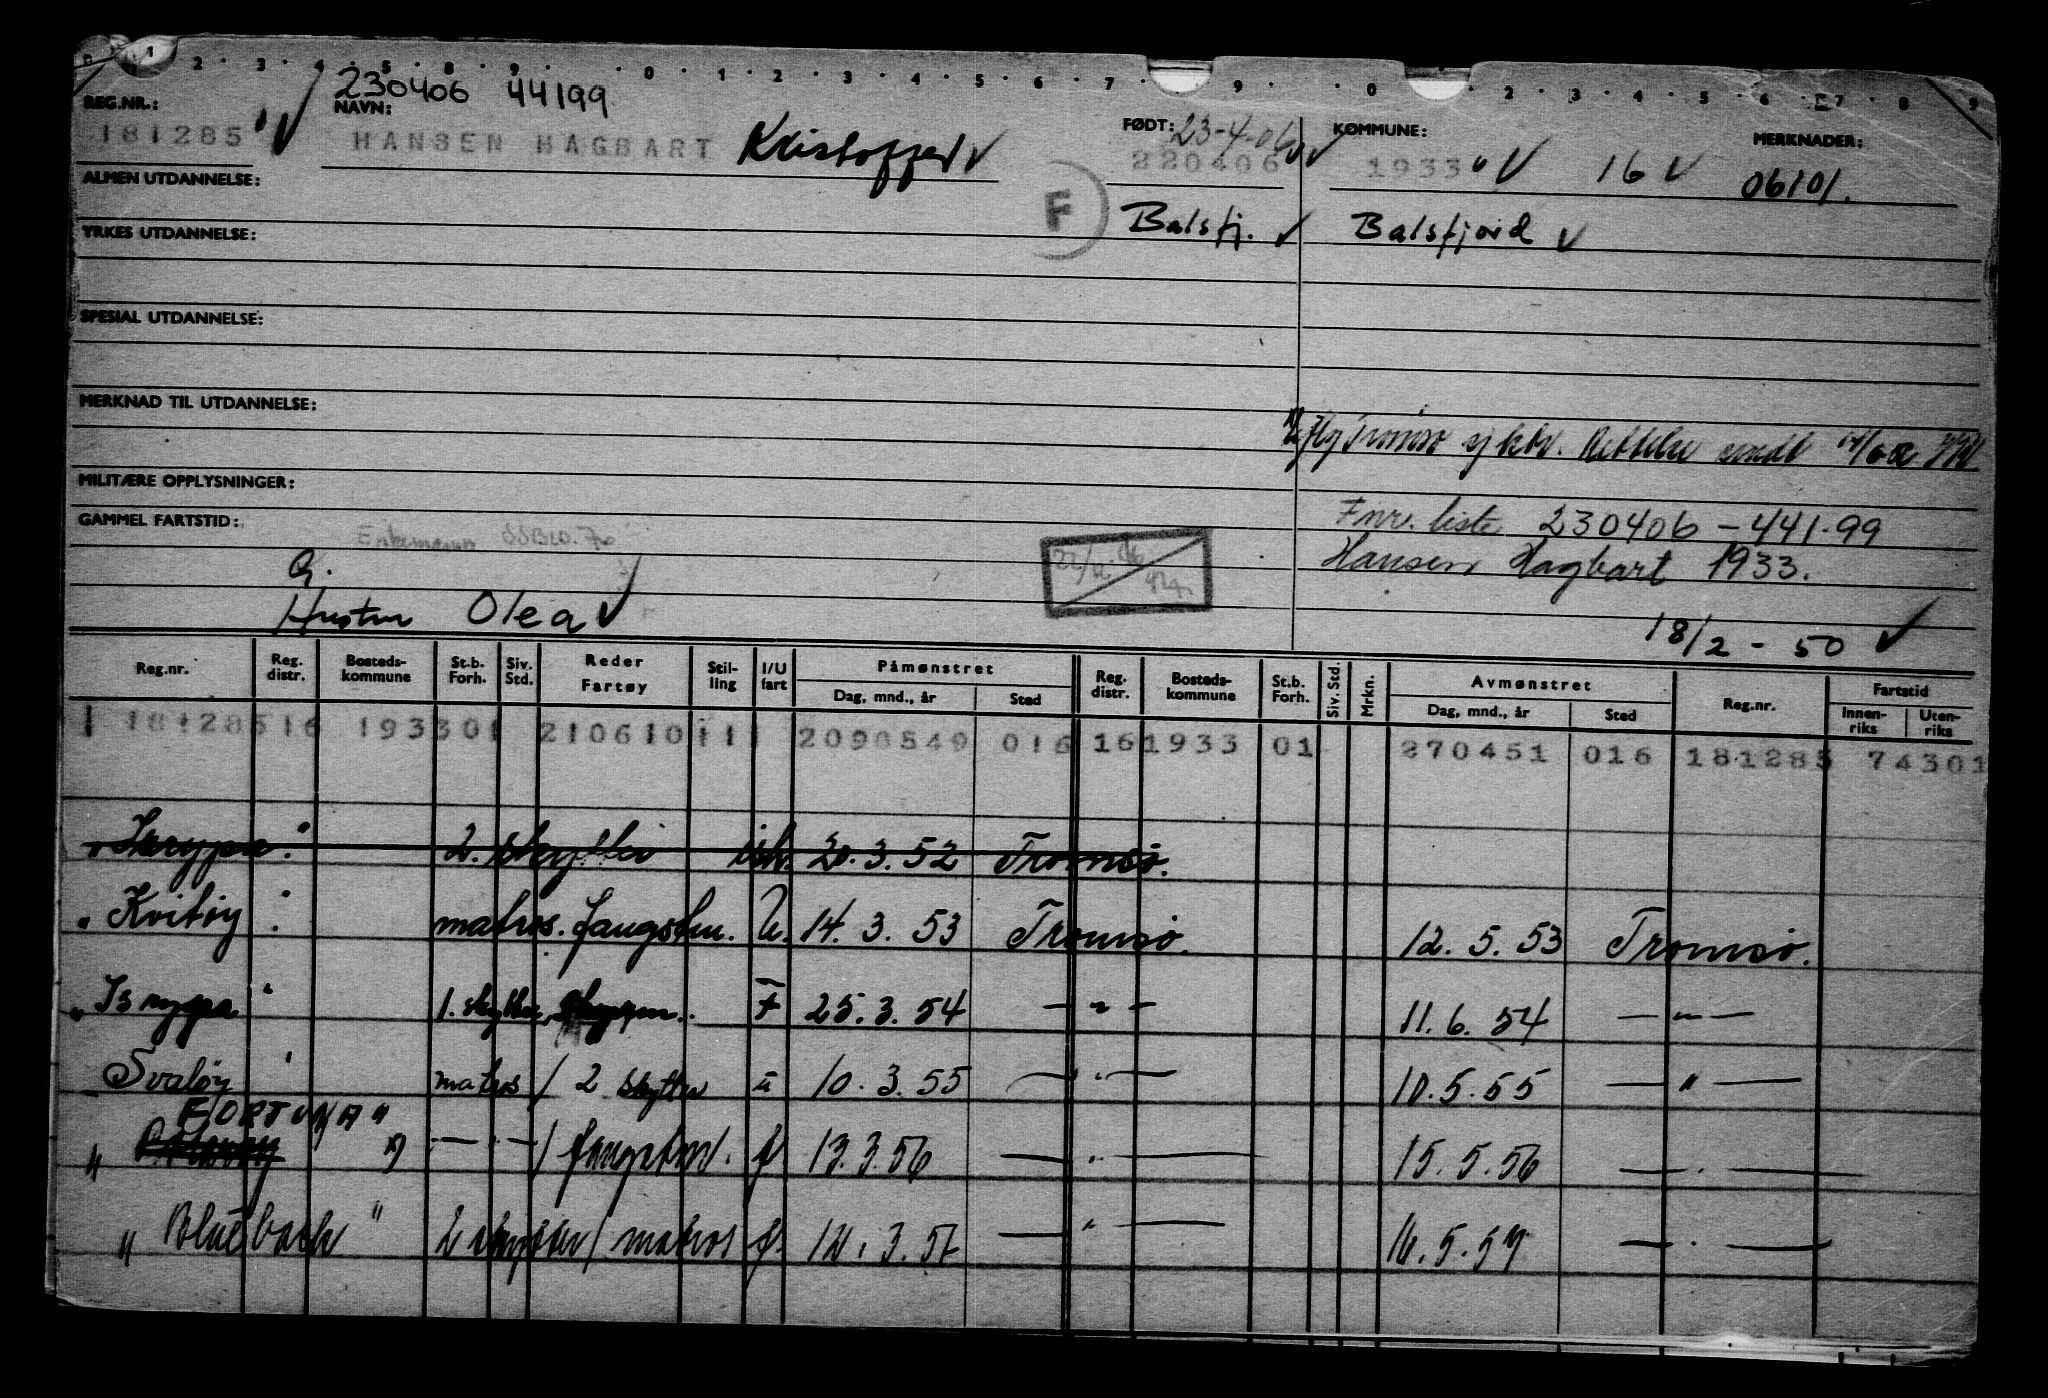 0 1 2 3 4 5 8 9 0 1 2 3 4 5 6 7 9 0 2 3 4 5 6 7 8 9
230406 44199
REG.NR.: NAVN: FØDT: 23-4-06 KOMMUNE: MERKNADER:
181285 HANSEN HAGBART Kristoffer 220406 1933 16 06101.
ALMEN UTDANNELSE:
F Balsfj. Balsfjord
YRKES UTDANNELSE:
SPESIAL UTDANNELSE:
MERKNAD TIL UTDANNELSE:
Tromsø Rettelse sendt
MILITÆRE OPPLYSNINGER:
Fnr. liste 230406-441.99
GAMMEL FARTSTID:
Enkemann
G. Hansen Hagbart 1933.
Hustru Olea 18/2-50
Reg.nr. Reg. distr. Bosteds-kommune St.b. Forh. Siv. Std. Reder Fartøy Stil-ling I/U fart Påmønstret Dag, mnd., år Sted Reg. distr. Bosteds-kommune St.b. Forh. Siv. Std. Mrkn. Avmønstret Dag, mnd., år Sted Reg.nr. Fartstid Innen-riks Uten-riks
1 18128516 193301 210610111 2090549 016 161933 01 270451 016 181285 74301
"Isrypa" 2. skytter ish. 20.3.52 Tromsø.
"Kvitøy" matros. fangstm. U. 14.3.53 Tromsø. 12.5.53 Tromsø.
"Isrypa" 1. skytter F 25.3.54 — " — 11.6.54 — " —
Svaløy" matros / 2 skytter u 10.3.55 — " — 10.5.55 — " —
FORTUNA"
" " — " — / fangstm. f 13.3.56 — " — 15.5.56 — " —
"Blueback" 2 skytter / matros f. 12.3.57 — " — 16.5.57 — " —